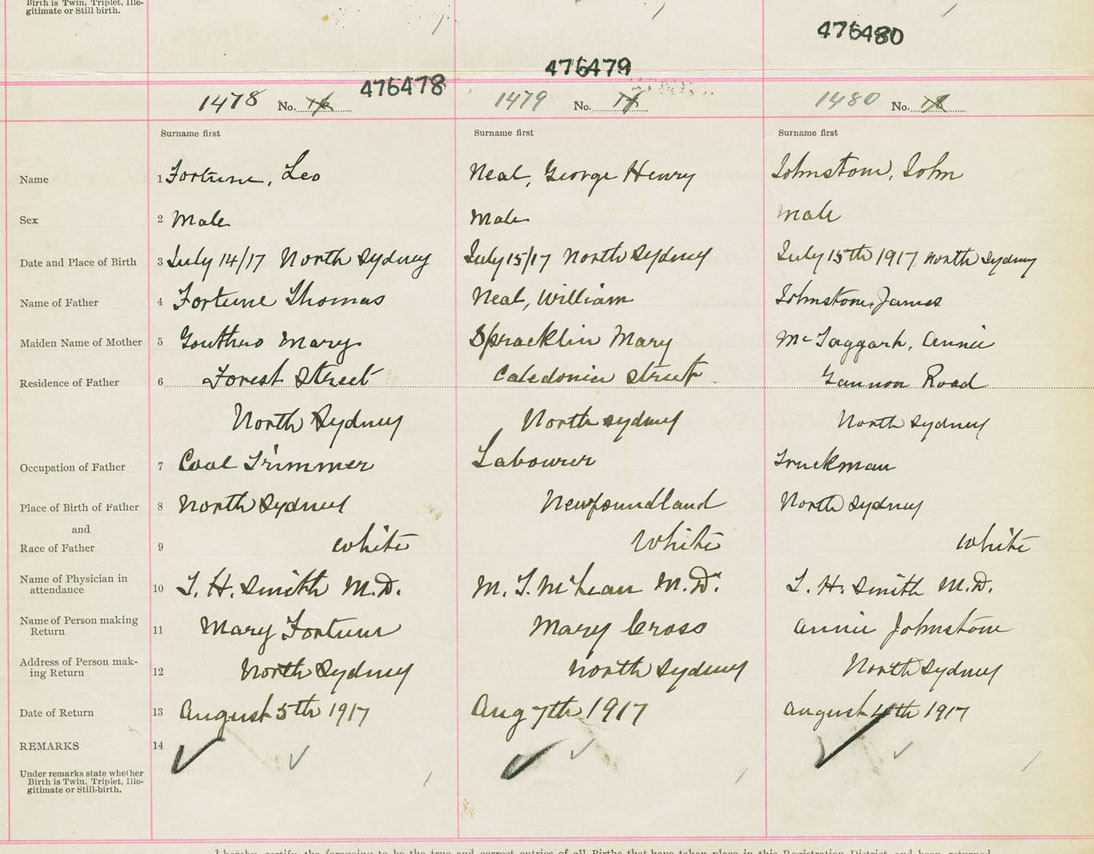 Birth is Twin, Triplet, Ille-
gitimate or Still birth.
476478 476479 476480
1478 No. 16 1479 No. 17 1480 No. 18
Surname first Surname first Surname first
Name 1 Fortune, Leo Neal, George Henry Johnstone, John
Sex 2 Male Male Male
Date and Place of Birth 3 July 14/17 North Sydney July 15/17 North Sydney July 15th 1917 North Sydney
Name of Father 4 Fortune Thomas Neal, William Johnstone, James
Maiden Name of Mother 5 Gouthro Mary Spracklin Mary McTaggart, Annie
Residence of Father 6 Forest Street Caledonia Street Gannon Road
North Sydney North Sydney North Sydney
Occupation of Father 7 Coal Trimmer Labourer Truckman
Place of Birth of Father 8 North Sydney Newfoundland North Sydney
and
Race of Father 9 White White White
Name of Physician in
attendance 10 T. H. Smith M.D. M. T. McLean M.D. T. H. Smith M.D.
Name of Person making
Return 11 Mary Fortune Mary Cross Annie Johnstone
Address of Person mak-
ing Return 12 North Sydney North Sydney North Sydney
Date of Return 13 August 5th 1917 Aug 7th 1917 August 4th 1917
REMARKS 14
Under remarks state whether
Birth is Twin, Triplet, Ille-
gitimate or Still-birth.
I hereby certify the foregoing to be the true and correct entries of all Births that have taken place in this Registration District and been returned